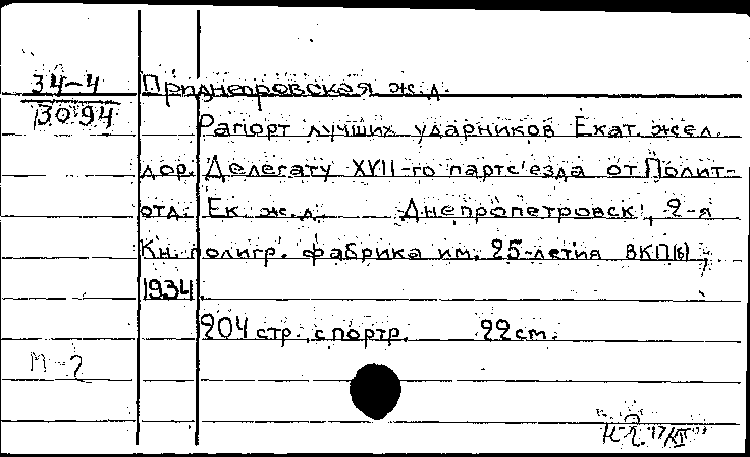 34-4
30 94
Приднепровская ж.д.
Рапорт лучших ударников Екат. жел.
дор. Делегату XVII-го партс'езда от Полит-
отд. Ек. ж.д. Днепропетровск, 2-я
Кн. полигр. фабрика им. 25-летия ВКП(б),
1934.
204 стр. с портр. 22 см.
М-2